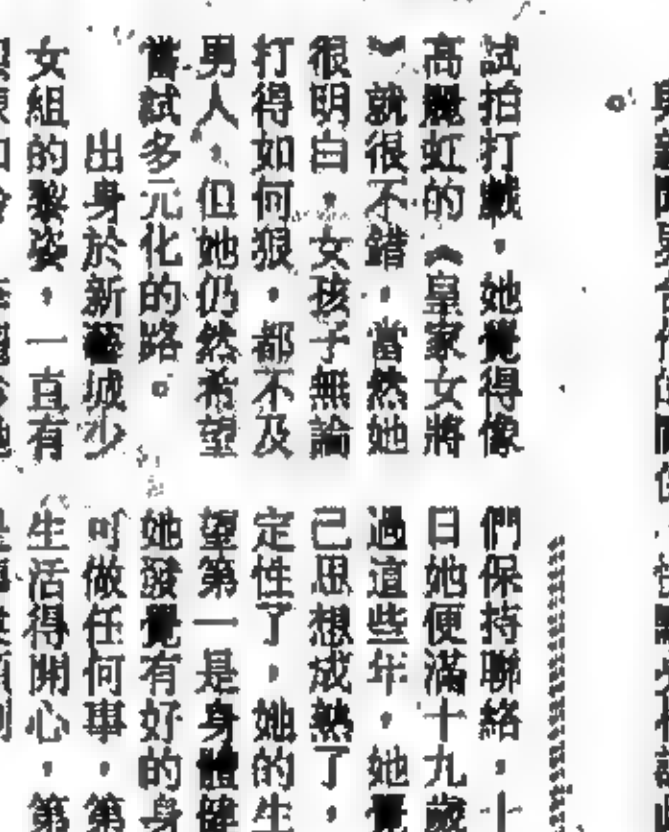 試拍打戲，她覺得像
高麗虹的︽皇家女將
︾就很不錯，當然她
很明白，女孩子無論
打得如何狠，都不及
男人，但她仍然希望
嘗試多元化的路。
出身於新藝城少
女組的黎姿，一直有
們保持聯絡，十
日她便滿十九歲
過這些年，她覺
己思想成熟了，
定性了，她的生
望第一是身體健
她發覺有好的身
可做任何事，第
生活得開心，第